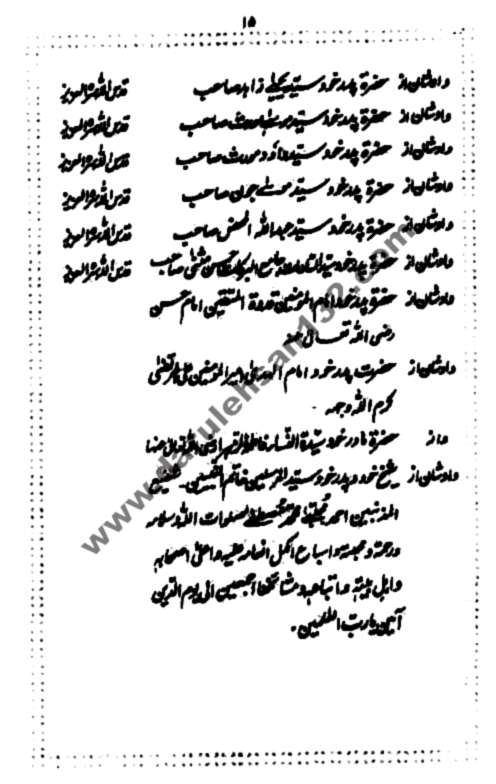 ۱۵
و ایشان از حضرة پدر خود سید یحییٰ زاہد صاحب قدس اللہ سرہ العزیز
و ایشان از حضرة پدر خود سید مورث صاحب قدس اللہ سرہ العزیز
و ایشان از حضرة پدر خود سید داؤد مورث صاحب قدس اللہ سرہ العزیز
و ایشان از حضرة پدر خود سید موسیٰ جون صاحب قدس اللہ سرہ العزیز
و ایشان از حضرة پدر خود سید عبد اللہ المحض صاحب قدس اللہ سرہ العزیز
و ایشان از حضرة پدر خود سید جامع البرکات حسن مثنیٰ صاحب قدس اللہ سرہ العزیز
و ایشان از حضرة پدر خود امام المؤمنین قدوة المتقین امام حسن
رضی اللہ تعالیٰ عنہ
و ایشان از حضرت پدر خود امام امیر المؤمنین علی المرتضیٰ
کرم اللہ وجہہ
و از حضرة مادر خود سیدة النساء فاطمة الزہرا رضی اللہ تعالیٰ عنہا
و ایشان از شیخ خود و پدر خود سید المرسلین خاتم النبیین شفیع
المذنبین احمد مجتبیٰ محمد مصطفیٰ صلوات اللہ وسلامہ
ورحمة واتباع اکمل علیہ وعلیٰ اصحابہ
واہل بیتہ واتباعہ ومشائخنا اجمعین الیٰ یوم الدین
آمین یا رب العٰلمین۔
www.darulehsan132.com